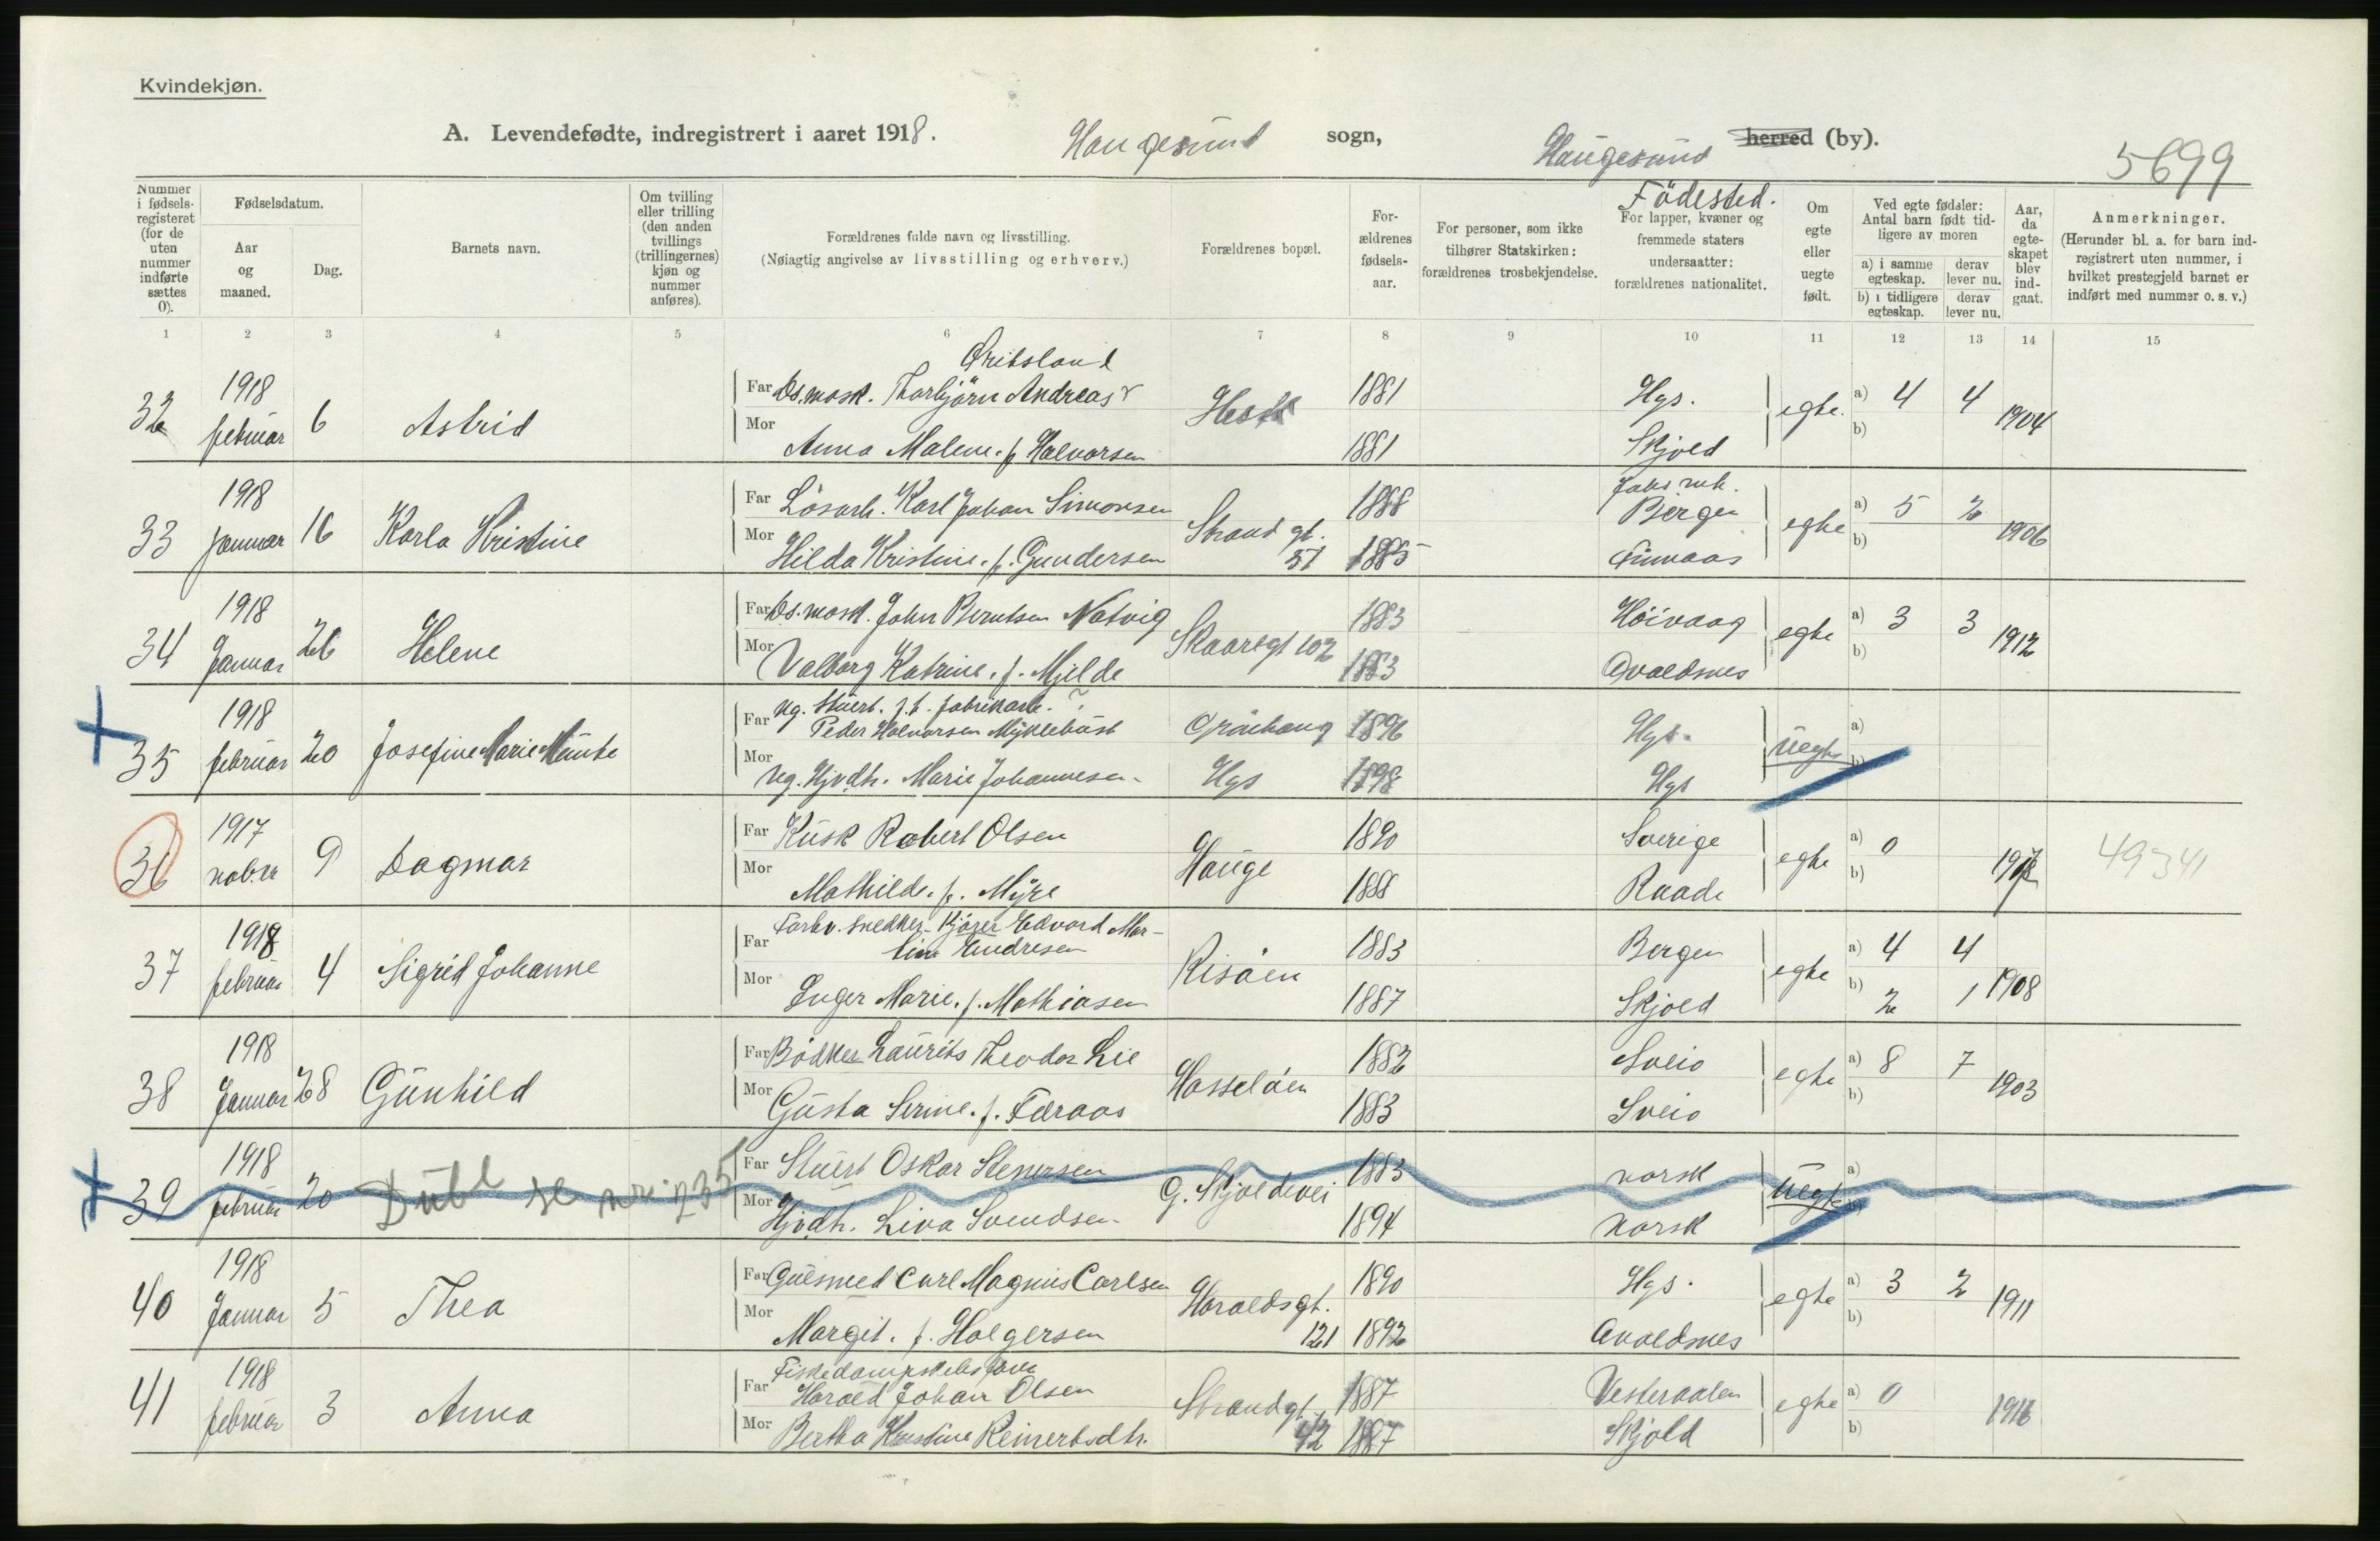 Kvindekjøn.
A. Levendefødte, indregistrert i aaret 1918. Haugesund sogn, Haugesund herred (by).
5699
Nummer i fødsels-registeret (for de uten nummer indførte sættes 0).
Fødselsdatum.
Aar og maaned.
Dag.
Barnets navn.
Om tvilling eller trilling (den anden tvillings (trillingernes) kjøn og nummer anføres).
Forældrenes fulde navn og livsstilling.
(Nøiagtig angivelse av livsstilling og erhverv.)
Forældrenes bopæl.
For-ældrenes fødsels-aar.
For personer, som ikke tilhører Statskirken: forældrenes trosbekjendelse.
Födested.
For lapper, kvæner og fremmede staters undersaatter: forældrenes nationalitet.
Om egte eller uegte født.
Ved egte fødsler: Antal barn født tid-ligere av moren
a) i samme egteskap.
derav lever nu.
b) i tidligere egteskap.
derav lever nu.
Aar, da egte-skapet blev ind-gaat.
Anmerkninger.
(Herunder bl. a. for barn ind-registrert uten nummer, i hvilket prestegjeld barnet er indført med nummer o. s. v.)
1 2 3 4 5 6 7 8 9 10 11 12 13 14 15
32 1918 februar 6 Astrid
Far Ds.mask. Thorbjörn Andreas 1881 Hgs. egte. a) 4 4 1904
Mor Anna Malene. f. Halvorsen 1881 Skjold b)
33 1918 Januar 16 Karla Kristine
Far Lösarb. Karl Johan Simonsen Strandgt. 57 1888 Bergen egte a) 5 2 1906
Mor Hilda Kristine. f. Gundersen 1885 Finnaas b)
34 1918 Januar 26 Helene
Far Ds.mask. John Berntsen Natvig Skaaregt 102 1883 Höivaag egte a) 3 3 1912
Mor Valborg Katrine. f. Mjelde 1883 Avaldsnes b)
35 1918 februar 20 Josefine Marie
Far Ug. Stuert. f.t. fabrikarb. ?
Peder Halvorsen Myklebust 1896 Hgs. Uegte a)
Mor Ug. Hjvdtr. Marie Johannesen Hgs 1898 Hgs b)
36 1917 nobr. 9 Dagmar
Far Kusk Robert Olsen Hauge 1890 Sverige egte a) 0 49341
Mor Mathilde. f. Myre 1888 Raade b)
37 1918 februar 4 Sigrid Johanne
Far Forhv. snedker Edvard Mar-
tin Endresen Risöen 1883 Bergen egte a) 4 4 1908
Mor Inger Marie. f. Mathiasen 1887 Skjold b) 2 1
38 1918 Januar 28 Gunhild
Far Bödker Laurits Theodor Lie Hasselöen 1882 Sveio egte a) 8 7 1903
Mor Gusta Serine. f. Færaas 1883 Sveio b)
39 1918 februar 20 Dubl se nr. 235
Far Stuert Oskar Stenersen G. Skjoldevei 1883 norsk Uegte a)
Mor Hjvdtr. Liva Svendsen 1894 norsk b)
40 1918 Januar 5 Thea
Far Gulsmed Carl Magnus Carlsen Haraldsgt. 121 1890 Hgs. egte a) 3 2 1911
Mor Margit. f. Holgersen 1892 Avaldsnes b)
41 1918 februar 3 Anna
Far Harald Johan Olsen Strandgt. 42 1887 Vesteraalen egte a) 0 1916
Mor Bertha Kristine Reinertsdtr. 1887 Skjold b)